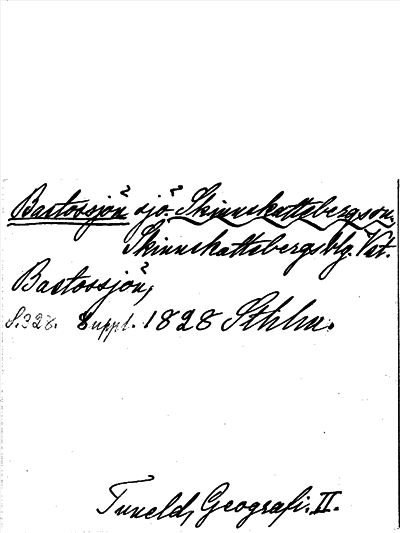 Bastossjön sjö. Skinnskattebergs sn.
Skinnskattebergs blg. Vst.
Bastossjön,
S. 328. 8 uppl. 1828 Sthlm.
Tuneld, Geografi. II.